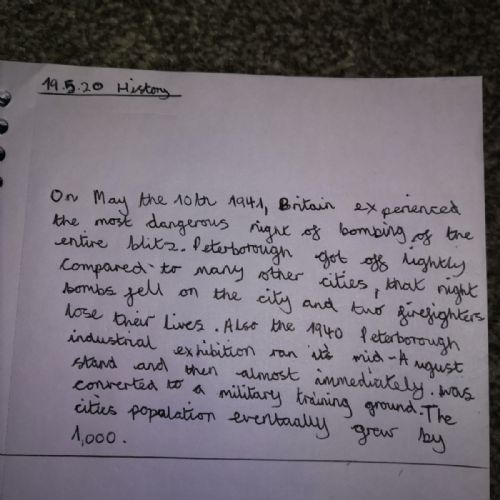 19.5.20 History
On May the 10th 1941, Britain experienced
the most dangerous night of bombing of the
entire blitz. Peterborough got off lightly
compared to many other cities, that night
bombs fell on the city and two firefighters
lose their lives. Also the 1940 Peterborough
industrial exhibition ran its mid-August
stand and then almost immediately. was
converted to a military training ground. The
cities population eventually grew by
1,000.